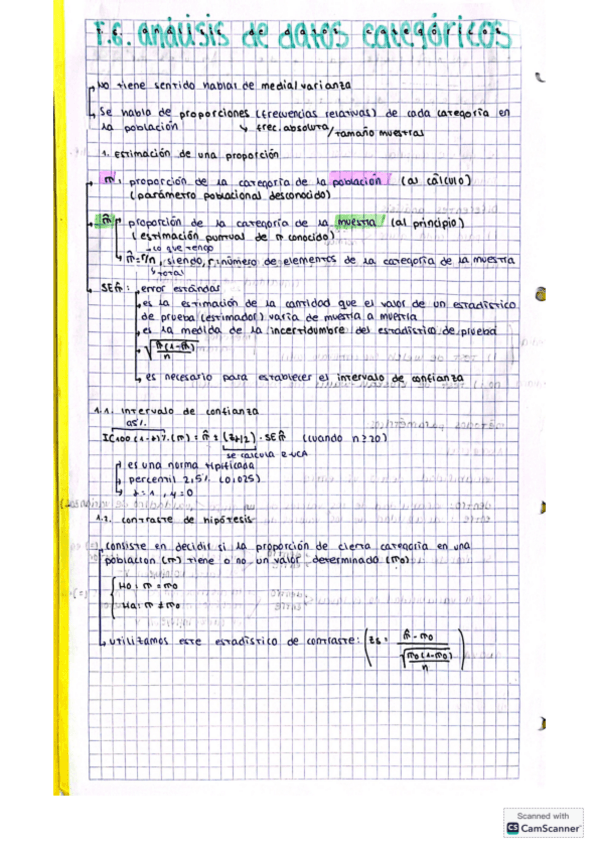 T.6. análisis de datos categóricos
No tiene sentido hablar de media/varianza
Se habla de proporciones (frecuencias relativas) de cada categoría en
la población ↳ frec. absoluta/tamaño muestras
1. Estimación de una proporción
π: proporción de la categoría de la población (al cálculo)
(parámetro poblacional desconocido)
π̂: proporción de la categoría de la muestra (al principio)
(estimación puntual de π conocido)
↳ lo que tengo
π̂ = r/n, siendo, r: número de elementos de la categoría de la muestra
↳ total
SEπ̂: error estándar
es la estimación de la cantidad que el valor de un estadístico
de prueba (estimador) varía de muestra a muestra
es la medida de la incertidumbre del estadístico de prueba
√(π̂(1-π̂)/n)
es necesario para establecer el intervalo de confianza
1.1. intervalo de confianza
95%
IC100(1-α)%(π) = π̂ ± (zα/2) · SEπ̂ (cuando n≥20)
se calcula R-UCA
es una norma tipificada
percentil 2,5% (0,025)
1.2. contraste de hipótesis
consiste en decidir si la proporción de cierta categoría en una
población (π) tiene o no, un valor determinado (π0)
H0: π = π0
Ha: π ≠ π0
utilizamos este estadístico de contraste: (zs = (π̂ - π0) / √(π0(1-π0)/n))
Scanned with
CS CamScanner